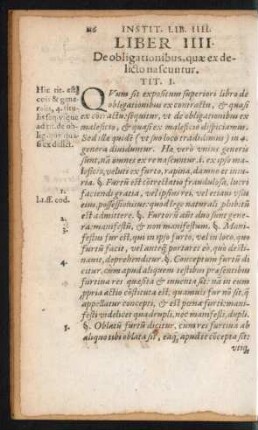 116 INSTIT. LIB. IIII.
LIBER IIII.
De obligationibus, quæ ex de-
licto nascuntur.
TIT. I.
Hic tit. est
QVum sit expositum superiori libro de
obligationibus ex contractu, & quasi
ex cōtractu, sequitur, ut de obligationibus ex
maleficio, & quasi ex maleficio dispiciamus.
Sed illæ quidē (ut suo loco tradidimus) in 4.
genera diuiduntur. Hæ verò vnius generis
sunt, nā omnes ex re nascuntur .i. ex ipso ma-
leficio, veluti ex furto, rapina, damno et iniu-
ria. §. Furtū est cōtrectatio fraudulosa, lucri
faciendi gratia, vel ipsius rei, vel etiam vsus
eius, possessionisve: quod lege naturali prohibi-
tū est admittere. §. Furtorū autē duo sunt gene-
ra: manifestū, & non manifestum. §. Mani-
festus fur est, qui in ipso furto, vel in loco, quo
furtū facit, vel antequā portaret eò, quò desti-
nauit, deprehenditur. §. Conceptum furtū di-
citur, cum apud aliquem testibus præsentibus
furtiua res quæsita & inuenta sit: nā in eum
propria actio cōstituta est, quamuis fur nō sit, q̄
appellatur concepti, & est pœnæ furti: mani-
festi videlicet quadrupli, nec manifesti, dupli.
§. Oblatū furtū dicitur, cum res furtiua ab
aliquo tibi oblata sit, eaq́, apud te cōcepta sit:
vtiq́